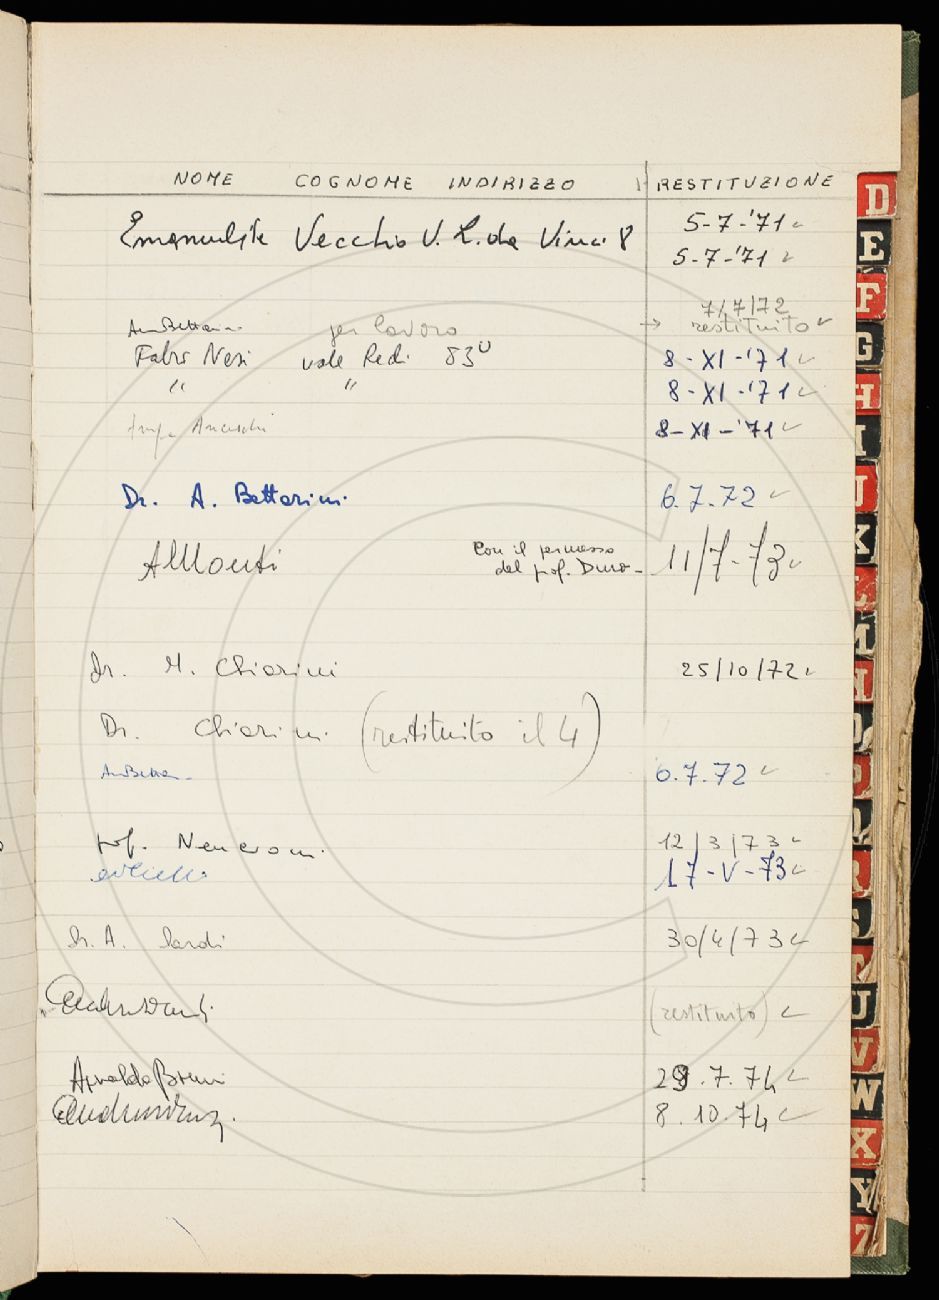 NOME COGNOME INDIRIZZO RESTITUZIONE
Vecchio V. L. da Vinci 8 5-7-'71
5-7-'71
7/7/72
per lavoro → restituito
Fabio Nesi viale Redi 83 8-XI-'71
" " 8-XI-'71
8-XI-'71
Dr. A. Bettarini 6.7.72
AMonti Con il permesso
del prof. Duro- 11/7-73
Dr. M. Chiarini 25/10/72
Dr. Chiarini (restituito il 4)
6.7.72
prof. Nencioni 12/3/73
17-V-73
Dr. A. 30/4/73
(restituito)
Arnaldo Bruni 29.7.74
8.10.74
D
E
F
G
H
I
J
K
L
M
N
O
P
Q
R
T
U
V
W
X
Y
Z